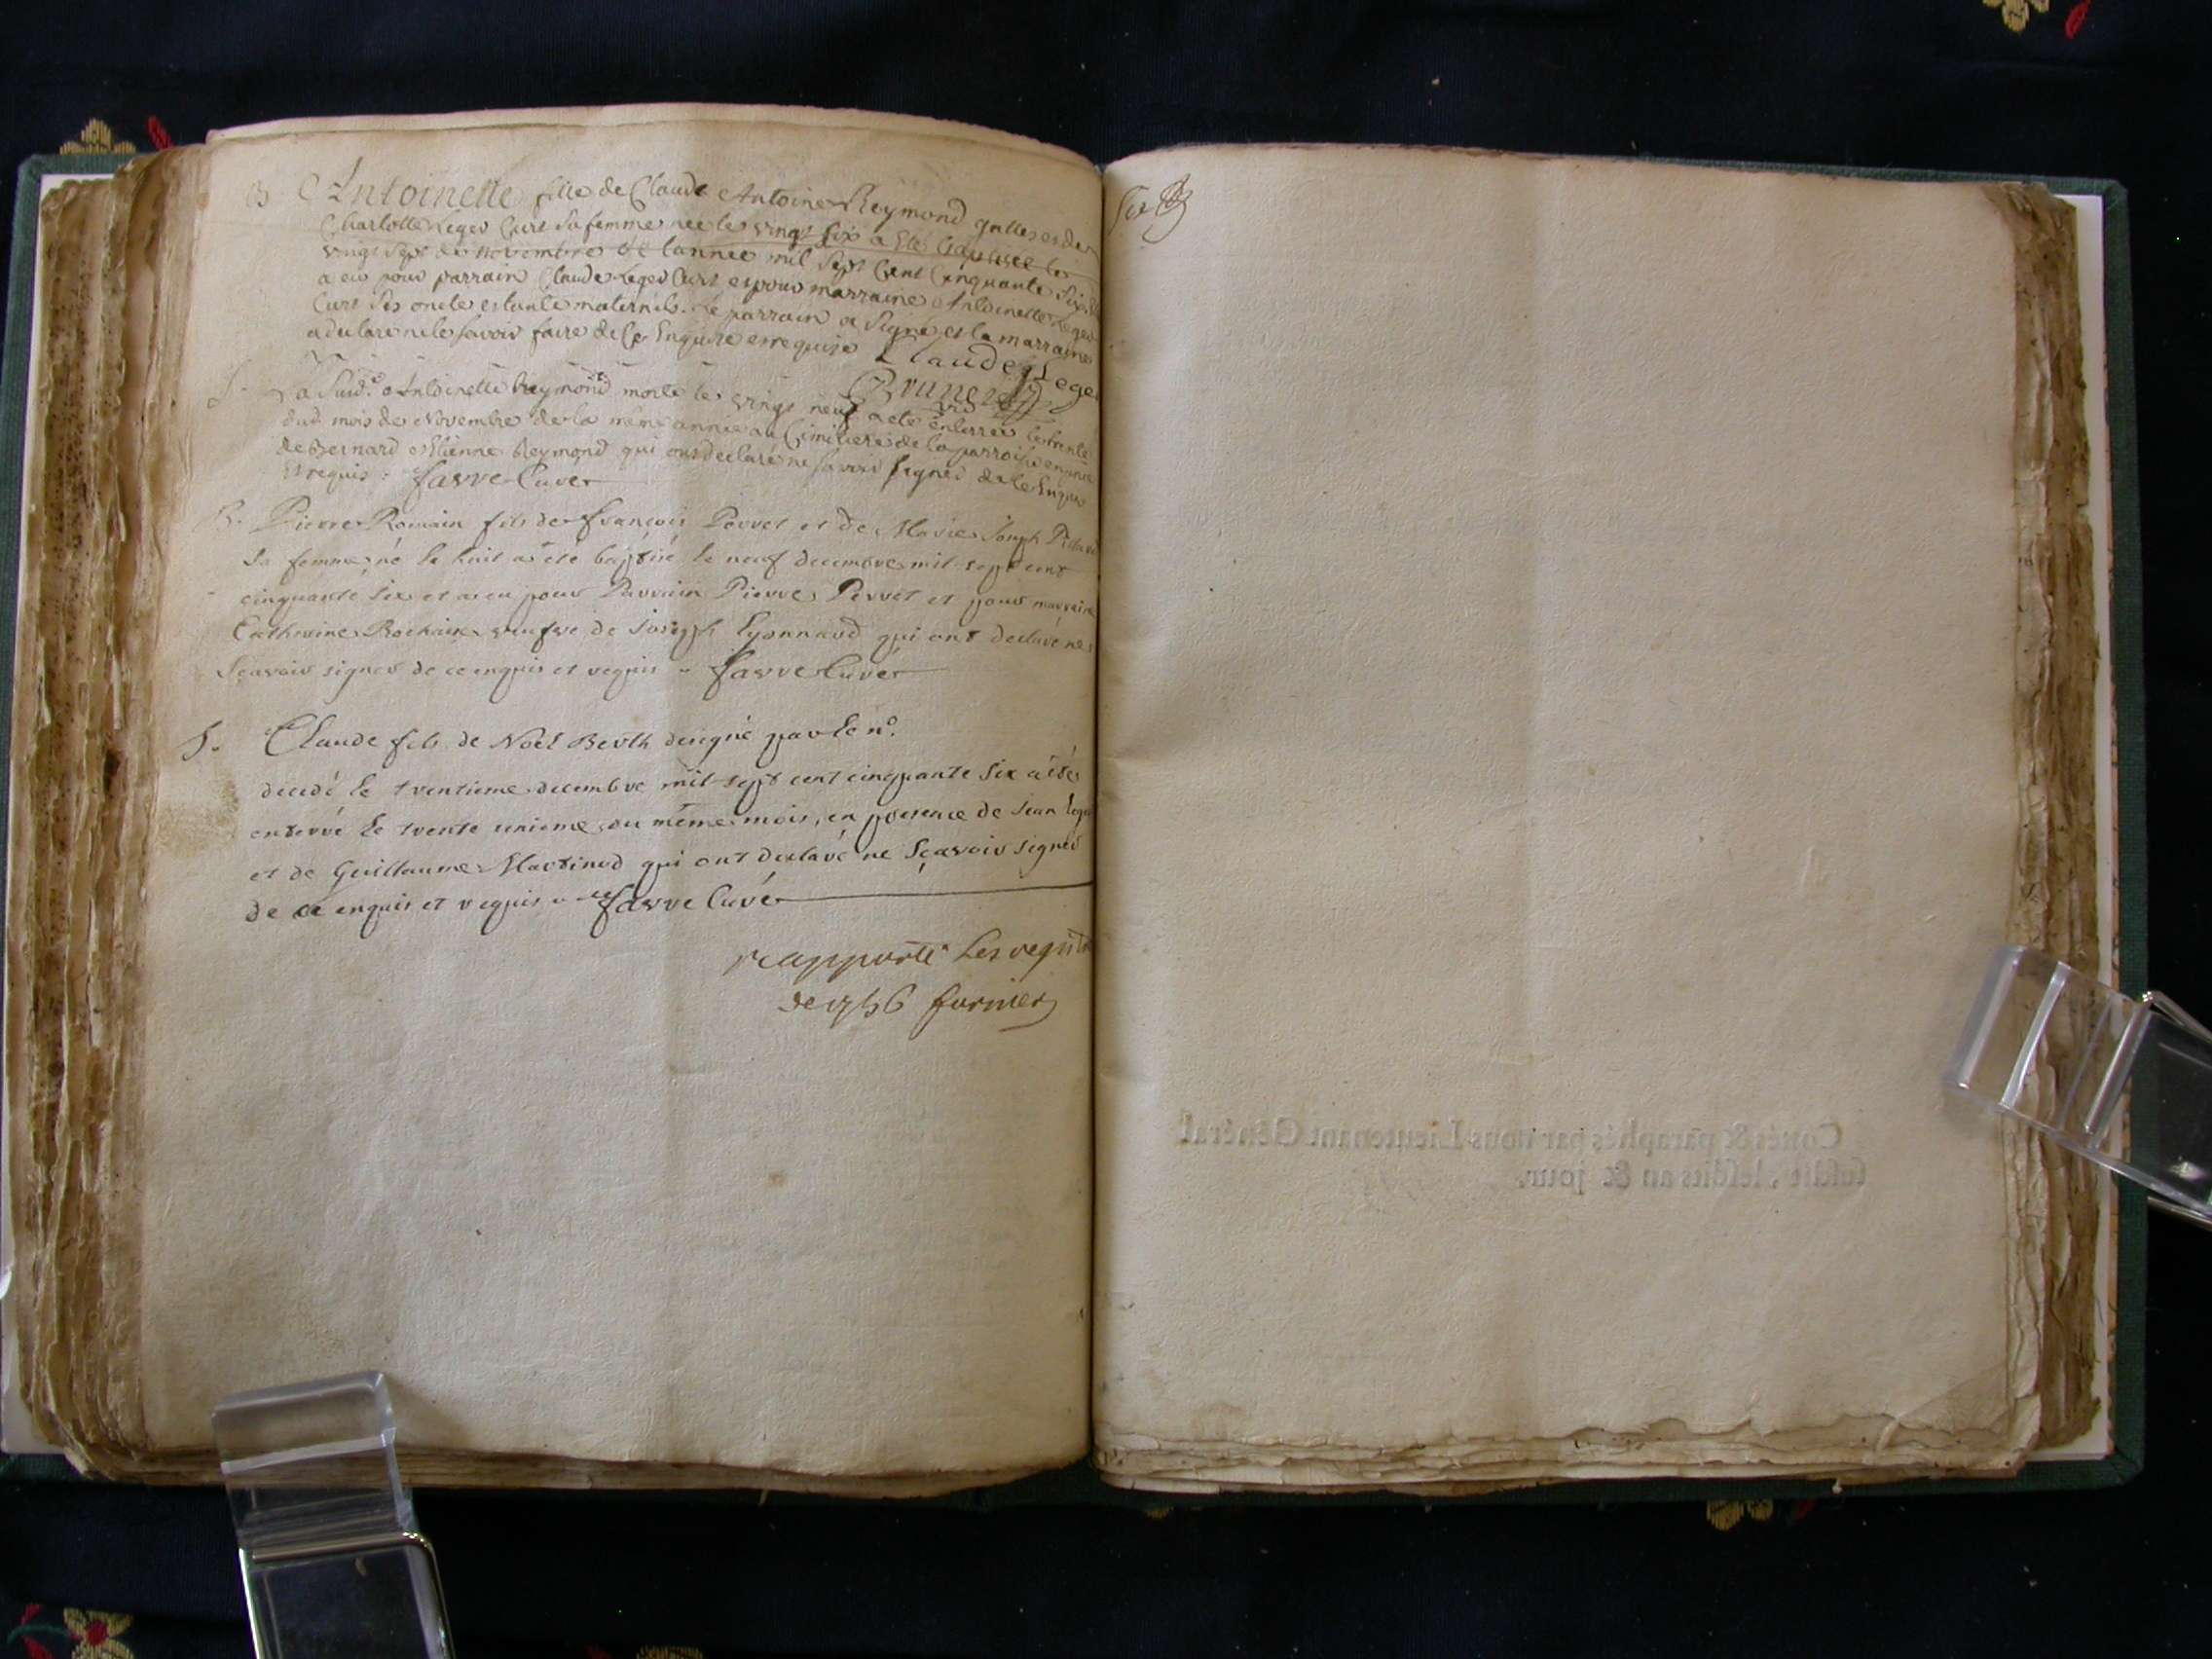 B Antoinette fille de Claude Antoine Reymond et de
Charlotte Leger Curt sa femme née le vingt six a Eté baptisée le
vingt Sept de Novembre de l'année mil Sept Cent Cinquante Six
a eu pour parrain Claude Leger Curt et pour marraine Antoinette Leger
Curt Ses oncle et tante maternels. Le parrain a Signé et la marraine
a declaré ne le savoir faire de Ce Enquise et requise Claude Leger
Brunet
S. La Susd.e Antoinette Reymond morte le vingt neuf a eté enterrée le trente
dud. mois de Novembre de la même année au Cimetiere de la parroisse en
de Bernard et Etienne Reymond qui ont declaré ne savoir signer de Ce Enquis
Et requis : favre Curé
B. Pierre Romain fils de françois Perret et de Marie Joseph
sa femme né le huit a été baptisé le neuf decembre mil sept cent
cinquante six et a eu pour Parrain Pierre Perret et pour marraine
Catherine Rochaix veufve de Joseph Lyonnard qui ont declaré ne
Sçavoir signer de ce enquis et requis - favre Curé
S. Claude fils de Noël Berth designé par le n°.
decedé le trentieme decembre mil sept cent cinquante six a été
enterré le trente unieme du même mois, en presence de Jean
et de Guillaume Martinod qui ont declaré ne Sçavoir signer
de ce enquis et requis favre Curé
rapporté Les
de 1756 fornier
Six
Cottés & paraphés par nous Lieutenant Général
susdit, lesdits an & jour.